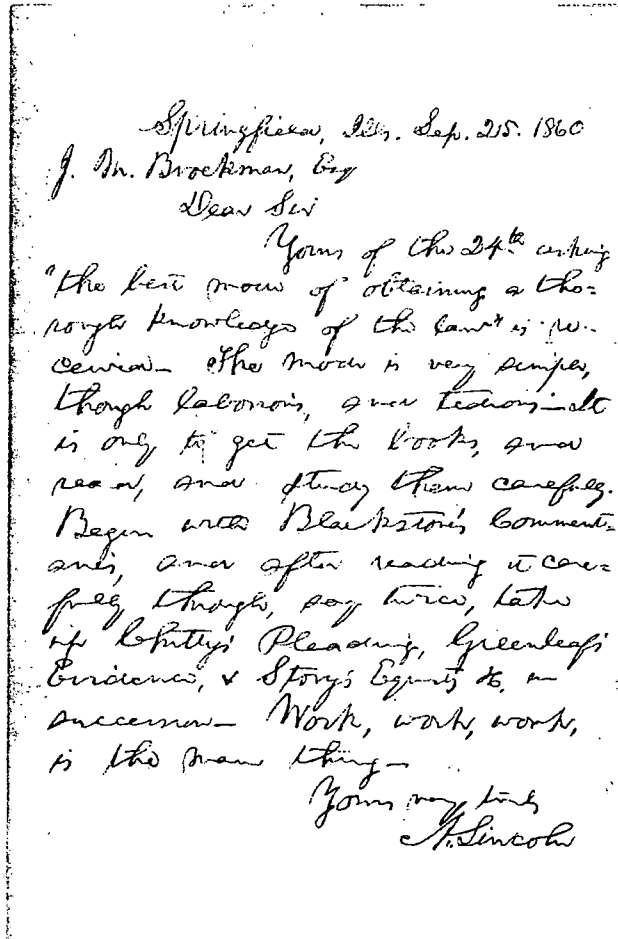 Springfield, Ills. Sep. 25. 1860
J. M. Brockman, Esq
Dear Sir
Yours of the 24th asking
"the best mode of obtaining a tho=
rough knowledge of the law" is re-
ceived— The mode is very simple,
though laborious, and tedious— It
is only to get the books, and
read, and study them carefully.
Begin with Blackstone's Comment=
aries, and after reading it care=
fully through, say twice, take
up Chitty's Pleading, Greenleaf's
Evidence, & Story's Equity &c. in
succession— Work, work, work,
is the main thing—
Yours very truly
A. Lincoln